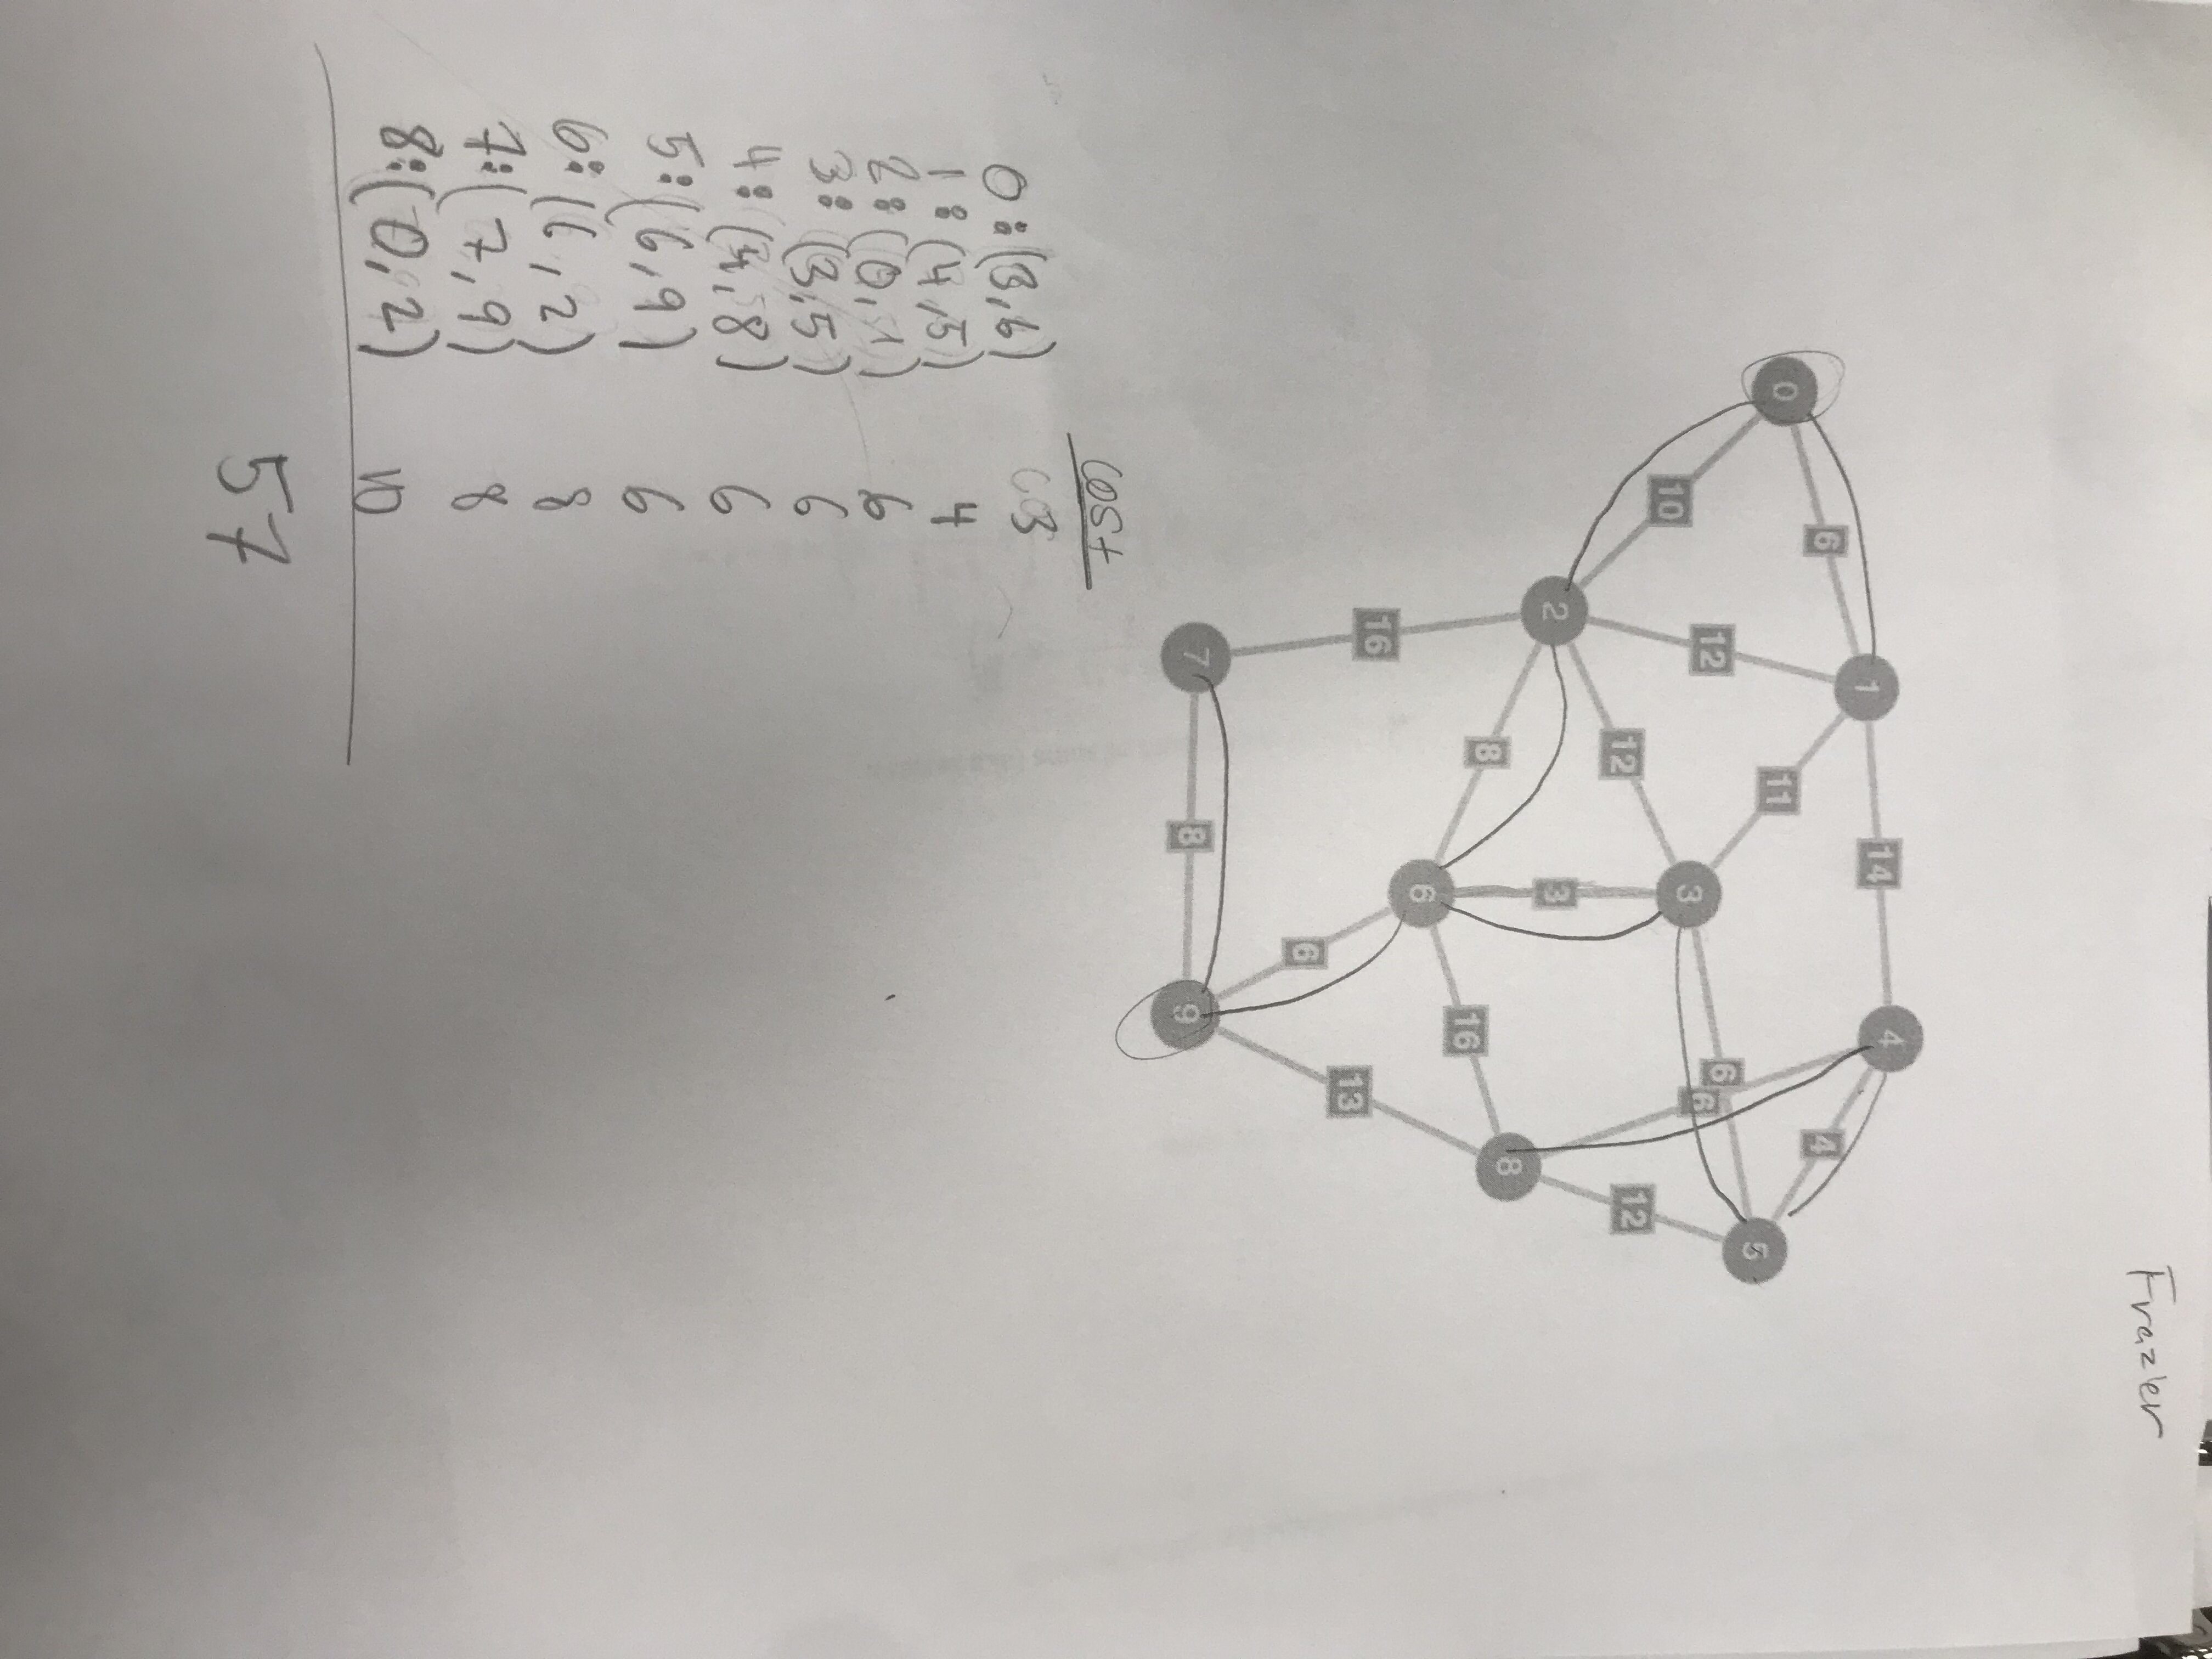 Frazier
14
4
1
6
4
0
5
11
6
12
3
6
10
12
12
2
3
8
8
16
6
16
13
6
7
8
9
cost
0:(3,6) 3
1:(4,5) 4
2:(0,1) 6
3:(3,5) 6
4:(4,8) 6
5:(6,9) 6
6:(6,2) 8
7:(7,9) 8
8:(0,2) 10
57